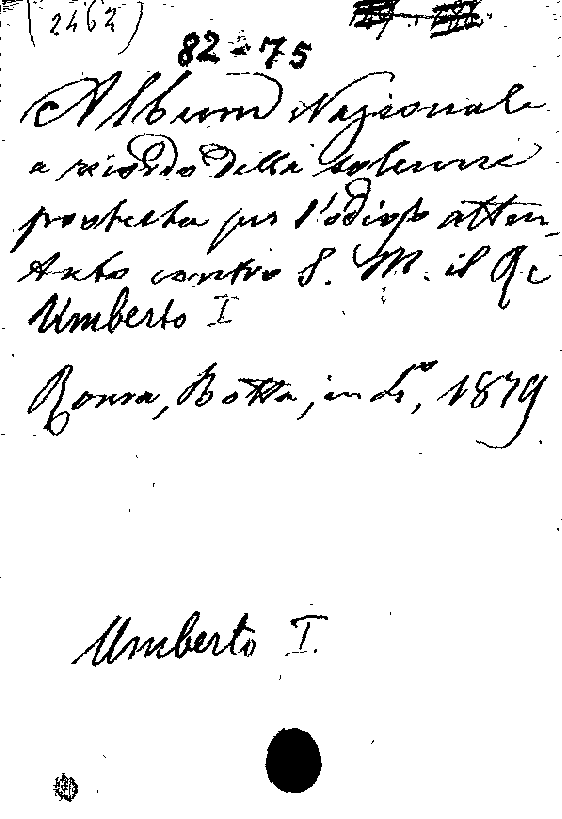 (2462)
82-75
Album Nazionale
a ricordo delle solenni
proteste per l'odioso atten-
tato contro S. M. il Re
Umberto I
Roma, Botta, in 4º, 1879.
Umberto I.